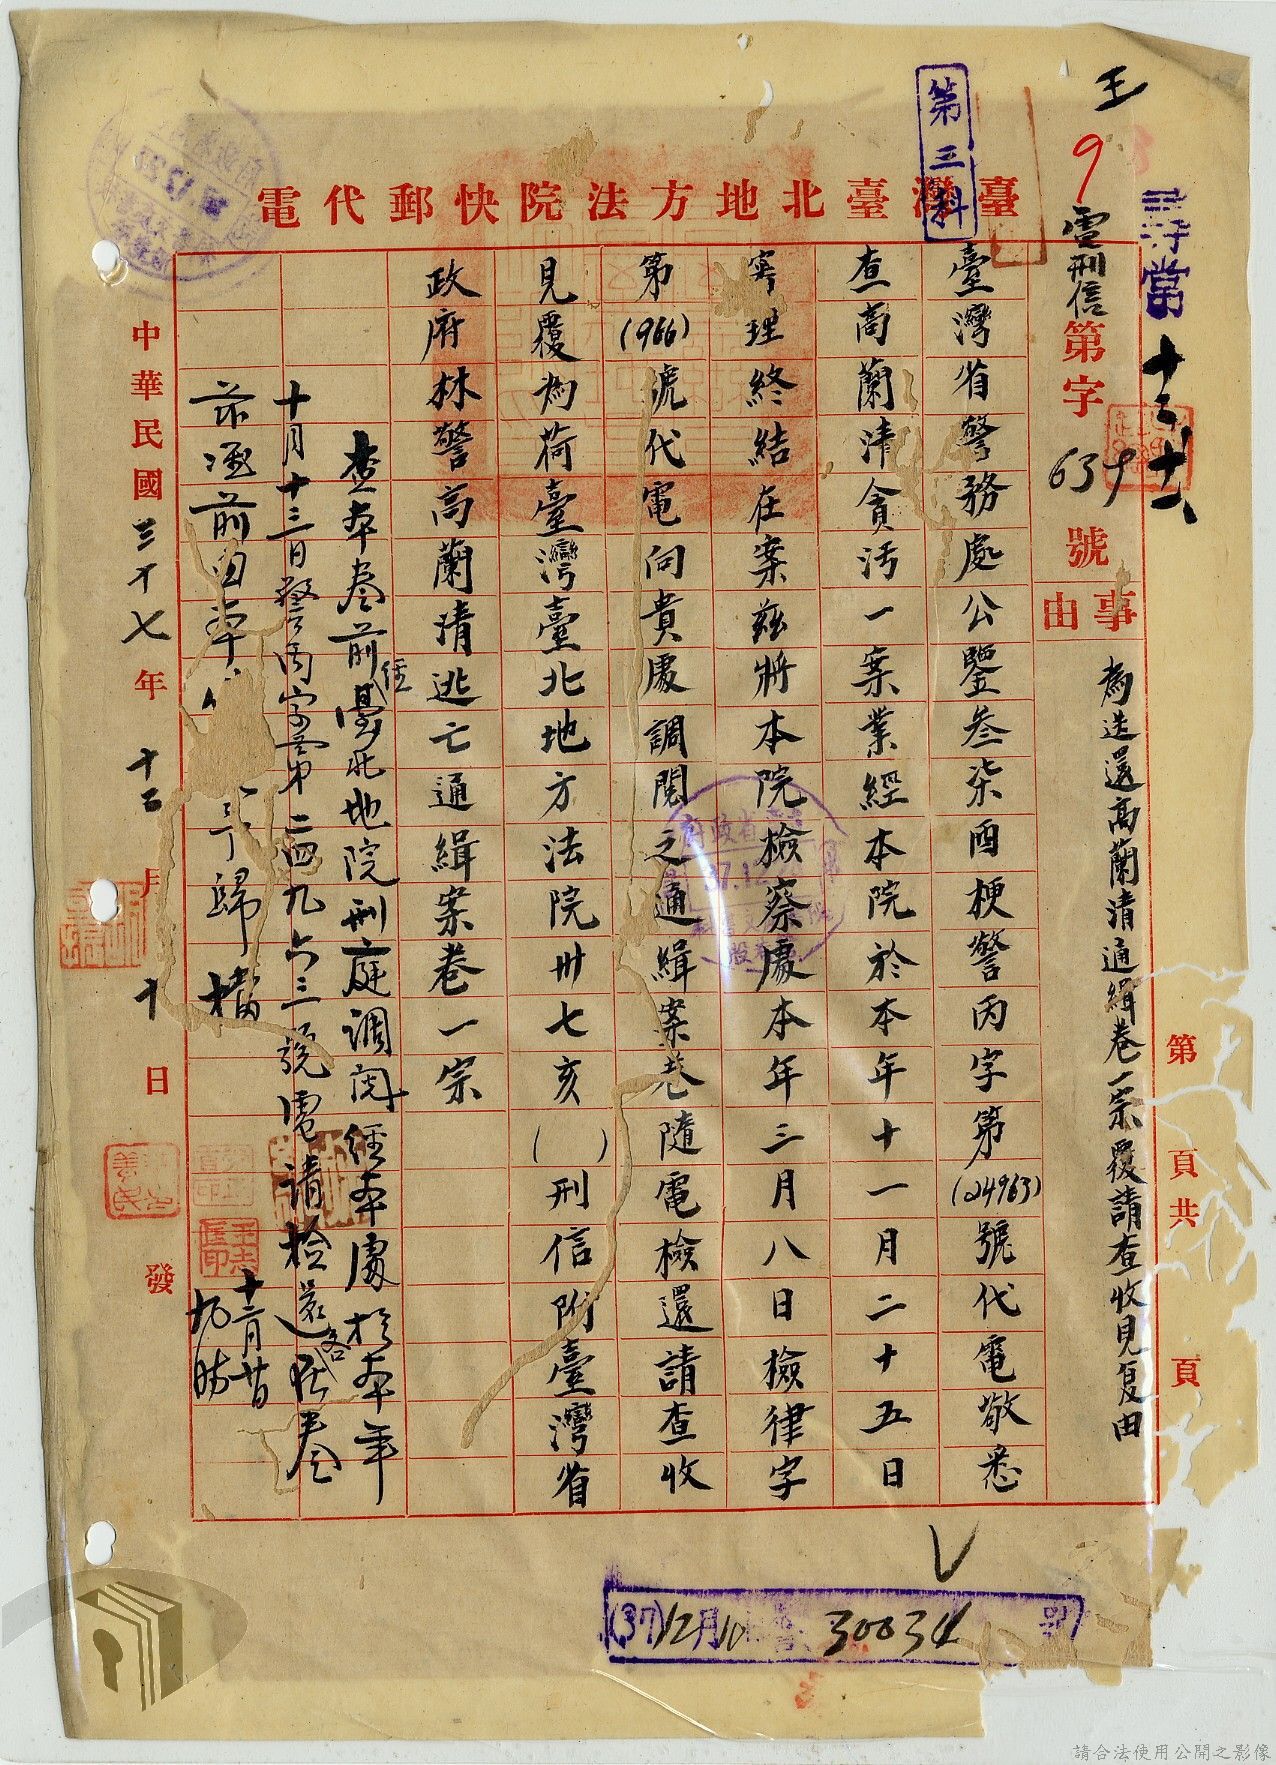 王
9
尋常
十二、十一
第三科
臺灣臺北地方法院快郵代電
電刑信第字639號
事由
為送還高蘭清通緝卷一宗覆請查收見复由
第 頁共 頁
臺灣省警務處公鑒叁柒酉梗警丙字第(24963)號代電敬悉
查高蘭清貪污一案業經本院於本年十一月二十五日
審理終結在案茲將本院檢察處本年三月八日檢律字
第(966)號代電向貴處調閱之通緝案卷隨電檢還請查收
見覆為荷臺灣臺北地方法院卅七亥( )刑信附臺灣省
政府林警高蘭清逃亡通緝案卷一宗
查本卷前經臺北地院刑庭調閱經本處於本年
十月十三日警丙字第二四九六三號電請檢還各在卷
茲准前由本 歸檔
十二月廿
中華民國三十七年十二月十日發
(37)12月10 30034
37.12
請合法使用公開之影像